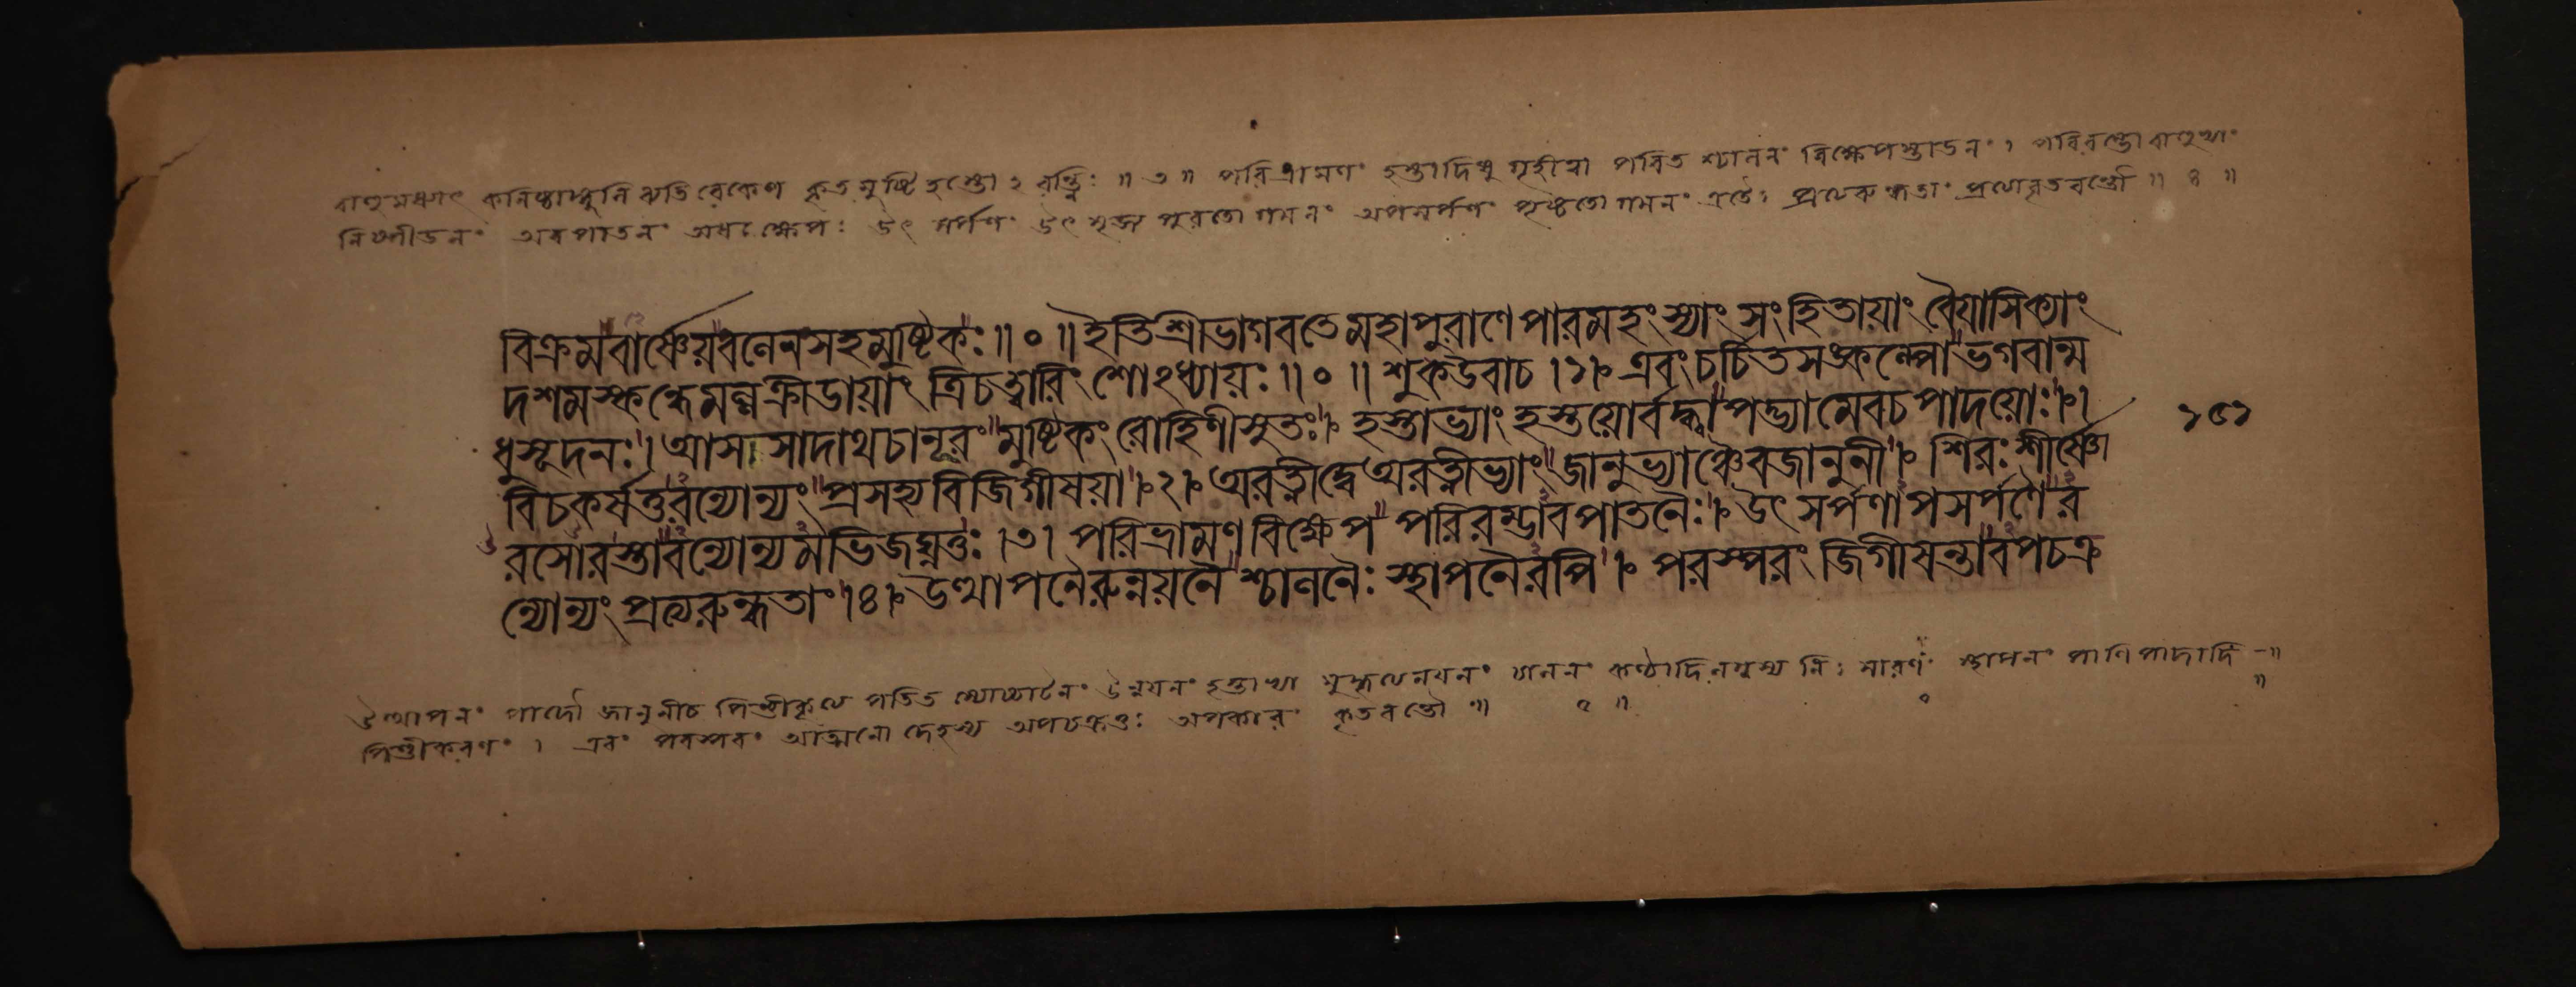 বাহুমধ্যাৎ কনিষ্ঠাঙ্গুলি ব্যতিরেকেণ কৃত মুষ্টি হস্তো ঽ রত্নিঃ ॥ ৩ ॥ পরিভ্রামণং হস্তাদিষু গৃহীত্বা পরিত শ্চালনং বিক্ষেপস্তাডনং । পরিরম্ভো বাহুভ্যাং
নিষ্পীডনং অবপাতনং অধঃ ক্ষেপঃ উৎ সর্পণং উৎ সৃজ্য পুরতো গমনং অপসর্পণং পৃষ্ঠতো গমনং এতৈঃ প্রত্যরুন্ধতাং ॥ ৪ ॥
বিক্রমবার্ষ্ণেয়বলেনসহমুষ্টিকঃ ॥ ০ ॥ ইতিশ্রীভাগবতেমহাপুরাণেপারমহংস্যাং সংহিতায়াং বৈয়াসিক্যাং
দশমস্কন্ধেমল্লক্রীডায়াং ত্রিচত্বারিংশোঽধ্যায়ঃ ॥ ০ ॥ শুকউবাচ ।১। এবংচর্চিতসঙ্কল্পোভগবান্ম
ধুসূদনঃ । আসসাদাথচানূরং মুষ্টিকংরোহিণীসুতঃ । হস্তাভ্যাং হস্তয়োর্বদ্ধ্বাপদ্ভ্যামেবচপাদয়োঃ । ১৫১
বিচকর্ষতুরন্যোন্যং প্রসহ্যবিজিগীষয়া ।২। অরত্নীদ্বেঅরত্নীভ্যাং জানুভ্যাঞ্চৈবজানুনী । শিরঃশীর্ষ্ণো
রসোরস্তাবন্যোন্যমভিজঘ্নতুঃ ।৩। পরিভ্রামণবিক্ষেপ পরিরম্ভাবপাতনৈঃ । উৎসর্পণাপসর্পণৈর
ন্যোন্যংপ্রত্যরুন্ধতাং ।৪। উত্থাপনৈরুন্নয়নৈ শ্চালনৈঃ স্থাপনৈরপি । পরস্পরং জিগীষন্তাবপচক্র
উত্থাপনং পাদৌ জানুনীচ পিণ্ডীকৃত্য পতিত স্যোত্থাপনং উন্নয়নং হস্তাভ্যা মুদ্ধৃত্যনয়নং চালনং কণ্ঠাদিলগ্নস্য নিঃ সারণং স্থাপনং পাণিপাদাদি ॥
পিণ্ডীকরণং । এবং পরস্পরং আত্মনো দেহস্য অপচক্রতুঃ অপকারং কৃতবন্তৌ ॥ ৫ ॥